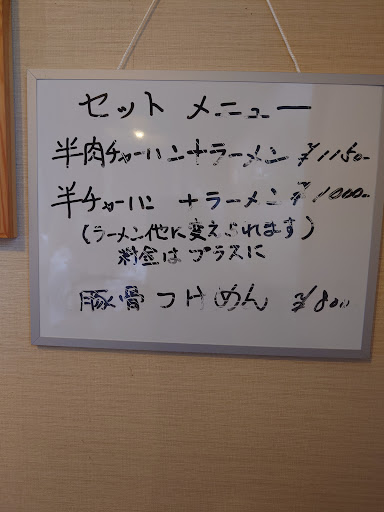 セット メニュー
半肉チャーハン+ラーメン ¥1150-
半チャーハン +ラーメン ¥1000-
(ラーメン他に変えられます)
料金はプラスに
豚骨つけめん ¥800